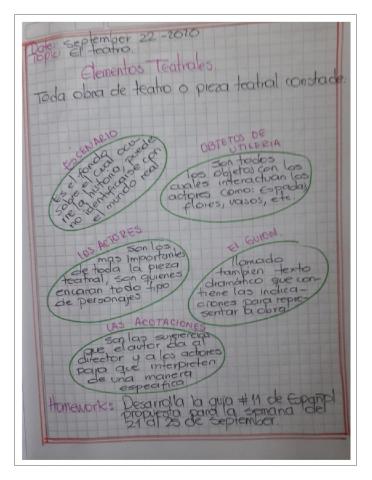 Date: September 22-2020
Topic: El teatro.
Elementos Teatrales.
Toda obra de teatro o pieza teatral consta de:
ESCENARIO
Es el fondo
sobre el cual ocu-
rre la historia, puede
no identificarse con
el mundo real
OBJETOS DE
UTILERIA
Son todos
los objetos con los
cuales interactuan los
actores como: Espadas,
flores, vasos, etc.
LOS ACTORES
Son los
mas importantes
de toda la pieza
teatral, son quienes
encaran todo tipo
de personajes
EL GUION.
llamado
tambien texto
dramático que con-
tiene las indica-
ciones para repre-
sentar la obra
LAS ACOTACIONES
Son las sugerencias
que el autor da al
director y a los actores
para que interpreten
de una manera
especifica
Homework: Desarrolla la guia #11 de Español
propuesta para la semana del
21 al 25 de September.